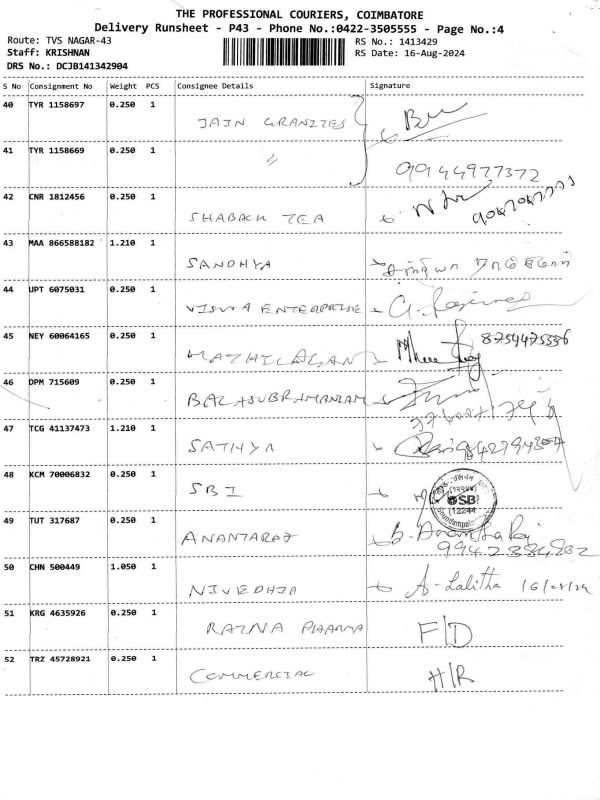 THE PROFESSIONAL COURIERS, COIMBATORE
Delivery Runsheet - P43 - Phone No.:0422-3505555 - Page No.:4
Route: TVS NAGAR-43 RS No.: 1413429
Staff: KRISHNAN RS Date: 16-Aug-2024
DRS No.: DCJB141342904
S No Consignment No Weight PCS Consignee Details Signature
40 TYR 1158697 0.250 1 JAIN GRANITES
41 TYR 1158669 0.250 1 〃 9944977372
42 CNR 1812456 0.250 1 SHABACK TEA
43 MAA 866588182 1.210 1 SANDHYA
44 UPT 6075031 0.250 1 VISWA ENTERPRISE
45 NEY 60064165 0.250 1 MATHILAGAN 8754475536
46 DPM 715609 0.250 1 BALASUBRAMANIAM
47 TCG 41137473 1.210 1 SATHYA
48 KCM 70006832 0.250 1 SBI SBI
49 TUT 317687 0.250 1 ANANTARAJ
50 CHN 500449 1.050 1 NIVEDHIA A. Lalitha 16/08/24
51 KRG 4635926 0.250 1 RATNA PHARMA F/D
52 TRZ 45728921 0.250 1 COMMERCIAL H/R